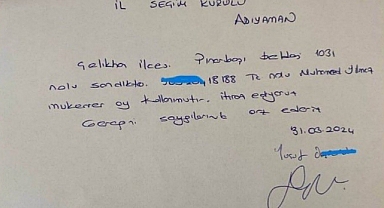 İL SEÇİM KURULU
ADIYAMAN
Çelikhan ilçesi. Pınarbaşı beldesi 1031
nolu sandıkta. 18188 Tc nolu Muhamed Yılmaz
mükerrer oy kullanmıştır. itiraz ediyorum
Gereğini saygılarımla arz ederim
31.03.2024
Yusuf